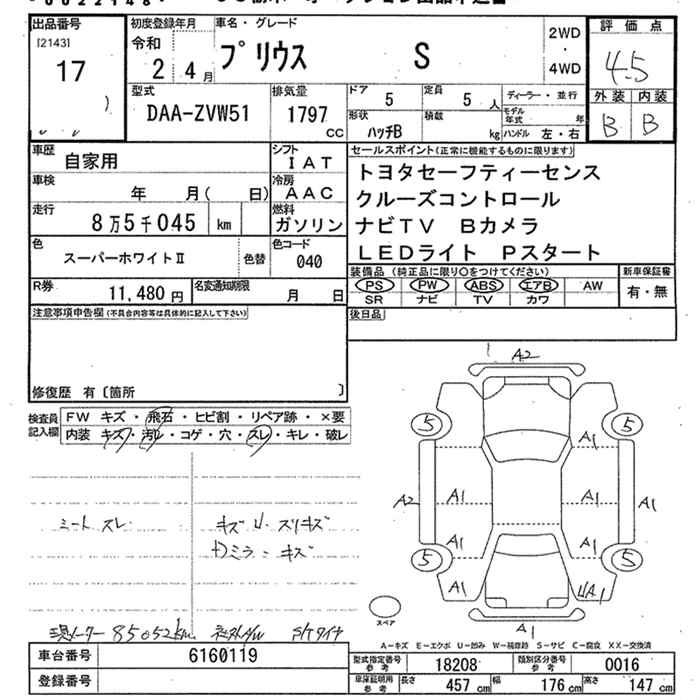 出品番号 初度登録年月 車名・グレード 2WD 4WD 評価点
[2143] 令和 プリウス S 4.5
17 2年 4月
型式 排気量 ドア 定員 ディーラー・並行 外装 内装
DAA-ZVW51 1797 CC 5 5人 モデル年式 年 B B
形状 ハッチB 積載 kg ハンドル 左・右
車歴 自家用 シフト IAT セールスポイント(正常に機能するものに限ります)
車検 年 月( 日) 冷房 AAC トヨタセーフティーセンス
走行 8万5千045 km 燃料 ガソリン クルーズコントロール
ナビTV Bカメラ
色 スーパーホワイトⅡ 色替 色コード 040 LEDライト Pスタート
R券 11,480円 名変通知期限 月 日 装備品(純正品に限り○をつけてください) 新車保証書
PS PW ABS エアB AW 有・無
SR ナビ TV カワ
注意事項申告欄(不具合内容等は具体的に記入して下さい) 後日品
修復歴 有〔箇所 〕
検査員記入欄 FW キズ・飛石・ヒビ割・リペア跡・×要
内装 キズ・汚レ・コゲ・穴・スレ・キレ・破レ
シートスレ キズU・スリキズ
Dミラーキズ
現メーター 85052km 社外A/W
A2
5 5
A1
A2 A1 A1 A1
A1 A1
5 5
A1 UA1
A1
スペア
A-キズ E-エクボ U-凹み W-補修跡 S-サビ C-腐食 XX-交換済
車台番号 6160119 型式指定番号 参考 18208 類別区分番号 参考 0016
登録番号 車庫証明用 参考 長さ 457cm 幅 176cm 高さ 147cm